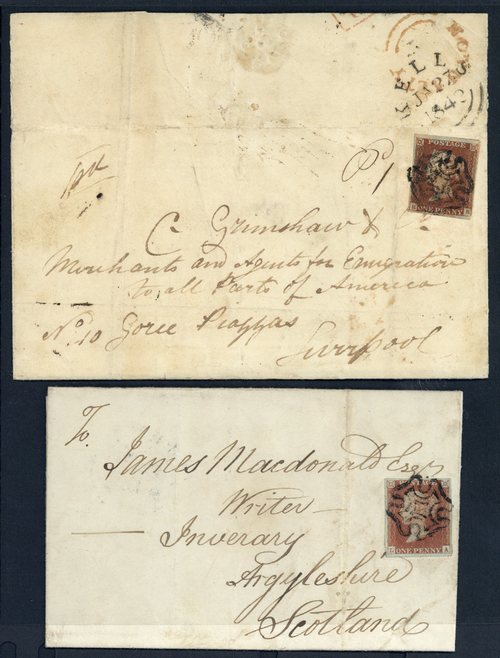 KELLS
JA 27
1842
POSTAGE
ONE PENNY
pd
P1
C. Grimshaw &
Merchants and Agents for Emigration
to all Parts of America
No. 10 Goree Piazzas
Liverpool
To.
James Macdonald Esqr
Writer
Inverary
Argyleshire
Scotland
ONE PENNY
A